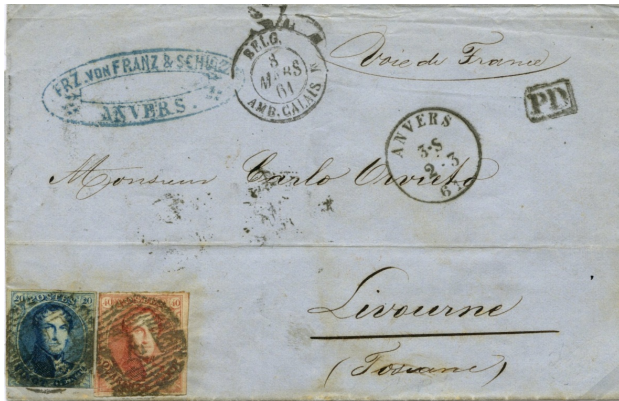 FRZ. VON FRANZ & SCHU
ANVERS.
BELG.
3
MARS
61
AMB. CALAIS
Voie de France
PD
ANVERS
3-S
2 3
61
Monsieur Carlo Orvieto
Livourne
(Toscane)
20 POSTES 20
40 40